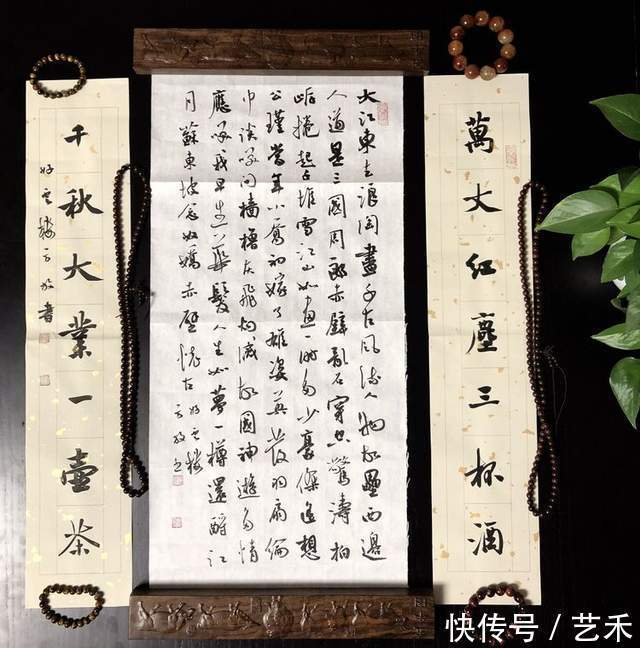 萬丈紅塵三杯酒
大江東去浪淘盡千古風流人物故壘西邊
人道是三國周郎赤壁亂石穿空驚濤拍
岸捲起千堆雪江山如畫一時多少豪傑遙想
公瑾當年小喬初嫁了雄姿英發羽扇綸
巾談笑間檣櫓灰飛煙滅故國神遊多情
應笑我早生華髮人生如夢一樽還酹江
月蘇東坡念奴嬌赤壁懷古好云樓
千秋大業一壺茶
好云樓
書
快传号 / 艺禾